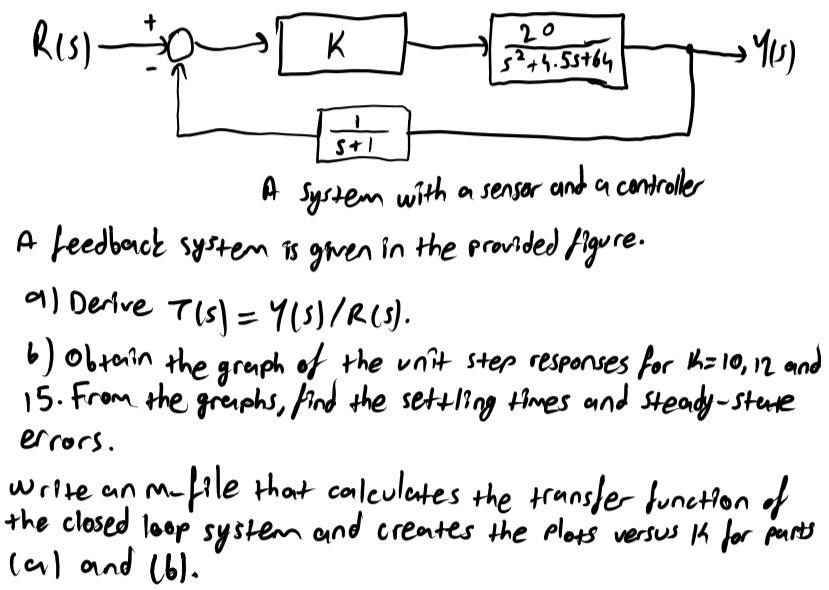 R(s) + K 20 Y(s)
- s²+4.5s+64
1
s+1
A system with a sensor and a controller
A feedback system is given in the provided figure.
a) Derive T(s) = Y(s)/R(s).
b) Obtain the graph of the unit step responses for K=10, 12 and
15. From the graphs, find the settling times and steady-state
errors.
Write an m-file that calculates the transfer function of
the closed loop system and creates the plots versus K for parts
(a) and (b).